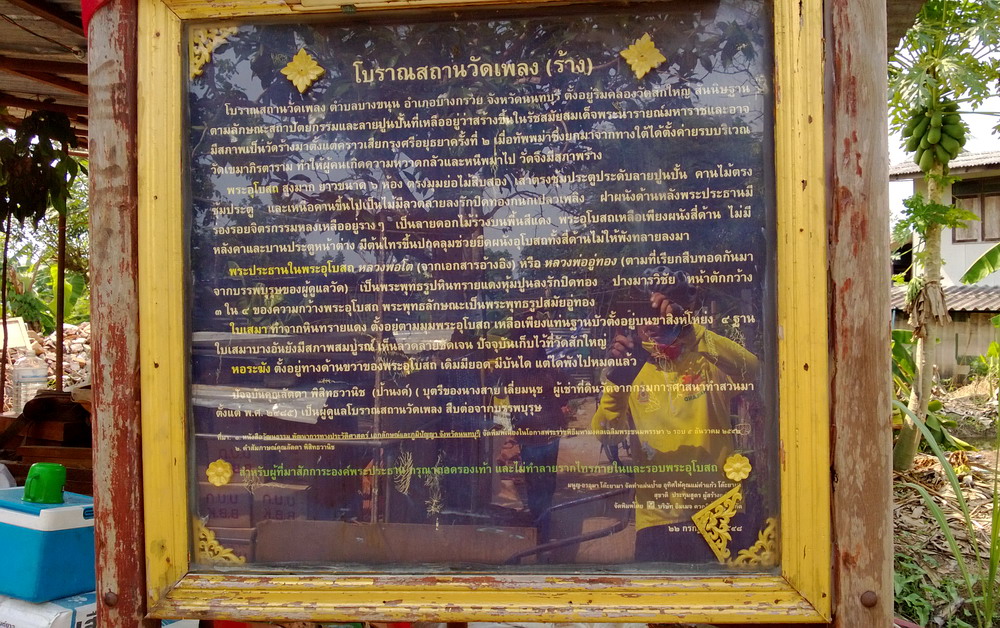 โบราณสถานวัดเพลง (ร้าง)
โบราณสถานวัดเพลง ตำบลบางขนุน อำเภอบางกรวย จังหวัดนนทบุรี ตั้งอยู่ริมคลองวัดสักใหญ่ สันนิษฐาน
ตามลักษณะสถาปัตยกรรมและลายปูนปั้นที่เหลืออยู่ว่าสร้างขึ้นในรัชสมัยสมเด็จพระนารายณ์มหาราชและอาจ
มีสภาพเป็นวัดร้างมาตั้งแต่คราวเสียกรุงศรีอยุธยาครั้งที่ ๒ เมื่อทัพพม่าซึ่งยกมาจากทางใต้ได้ตั้งค่ายรบบริเวณ
วัดเขมาภิรตาราม ทำให้ผู้คนเกิดความหวาดกลัวและหนีพม่าไป วัดจึงมีสภาพร้าง
พระอุโบสถ สูงมาก ยาวขนาด ๖ ห้อง ตรงมุมย่อไม้สิบสอง เสาตรงซุ้มประตูประดับลายปูนปั้น คานไม้ตรง
ซุ้มประตู และเหนือคานขึ้นไปเป็นไม้มีลวดลายลงรักปิดทองกนกเปลวเพลิง ฝาผนังด้านหลังพระประธานมี
ร่องรอยจิตรกรรมหลงเหลืออยู่รางๆ เป็นลายดอกไม้ร่วงบนพื้นสีแดง พระอุโบสถเหลือเพียงผนังสี่ด้าน ไม่มี
หลังคาและบานประตูหน้าต่าง มีต้นไทรขึ้นปกคลุมช่วยยึดผนังอุโบสถทั้งสี่ด้านไม่ให้พังทลายลงมา
พระประธานในพระอุโบสถ หลวงพ่อโต (จากเอกสารอ้างอิง) หรือ หลวงพ่ออู่ทอง (ตามที่เรียกสืบทอดกันมา
จากบรรพบุรุษของผู้ดูแลวัด) เป็นพระพุทธรูปหินทรายแดงหุ้มปูนลงรักปิดทอง ปางมารวิชัย หน้าตักกว้าง
๓ ใน ๔ ของความกว้างพระอุโบสถ พระพุทธลักษณะเป็นพระพุทธรูปสมัยอู่ทอง
ใบเสมา ทำจากหินทรายแดง ตั้งอยู่ตามมุมพระอุโบสถ เหลือเพียงแท่นฐานบัวตั้งอยู่บนขาสิงห์โหย่ง ๔ ฐาน
ใบเสมาบางอันยังมีสภาพสมบูรณ์ เห็นลวดลายชัดเจน ปัจจุบันเก็บไว้ที่วัดสักใหญ่
หอระฆัง ตั้งอยู่ทางด้านขวาของพระอุโบสถ เดิมมียอด มีบันได แต่ได้พังไปหมดแล้ว
ปัจจุบันคุณลัดดา พิสิทธวานิช (ป้านงค์) ( บุตรีของนางสาย เลี่ยมนุช ผู้เช่าที่ดินวัดจากกรมการศาสนาทำสวนมา
ตั้งแต่ พ.ศ. ๒๔๘๕) เป็นผู้ดูแลโบราณสถานวัดเพลง สืบต่อจากบรรพบุรุษ
ที่มา ๑. หนังสือวัฒนธรรม พัฒนาการทางประวัติศาสตร์ เอกลักษณ์และภูมิปัญญา จังหวัดนนทบุรี
๒. คำสัมภาษณ์คุณลัดดา พิสิทธวานิช
สำหรับผู้ที่มาสักการะองค์พระประธาน กรุณาถอดรองเท้า และไม่ทำลายรากไทรภายในและรอบพระอุโบสถ